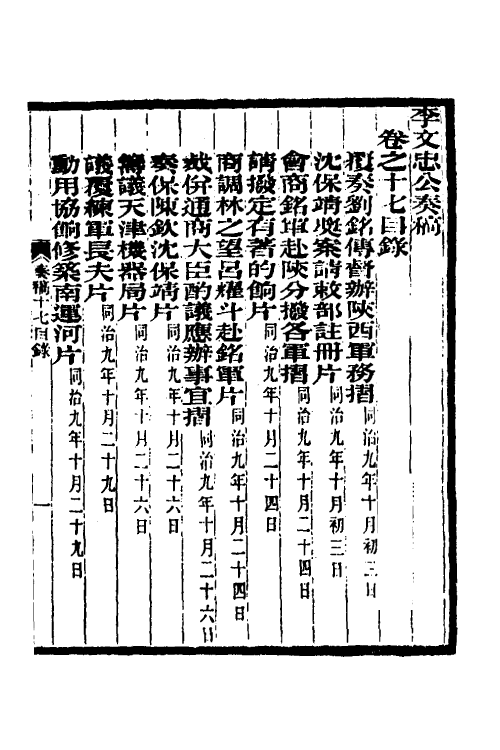 李文忠公奏稿
卷之十七目錄
覆奏劉銘傳督辦陝西軍務摺 同治九年十月初三日
沈保靖獎案請敕部註冊片 同治九年十月初三日
會商銘軍赴陝分撥各軍摺 同治九年十月二十四日
請撥定有著的餉片 同治九年十月二十四日
商調林之望呂耀斗赴銘軍片 同治九年十月二十四日
裁併通商大臣酌議應辦事宜摺 同治九年十月二十六日
奏保陳欽沈保靖片 同治九年十月二十六日
籌議天津機器局片 同治九年十月二十六日
議覆練軍長夫片 同治九年十月二十九日
動用協餉修築南運河片 同治九年十月二十九日
奏稿十七目錄
一